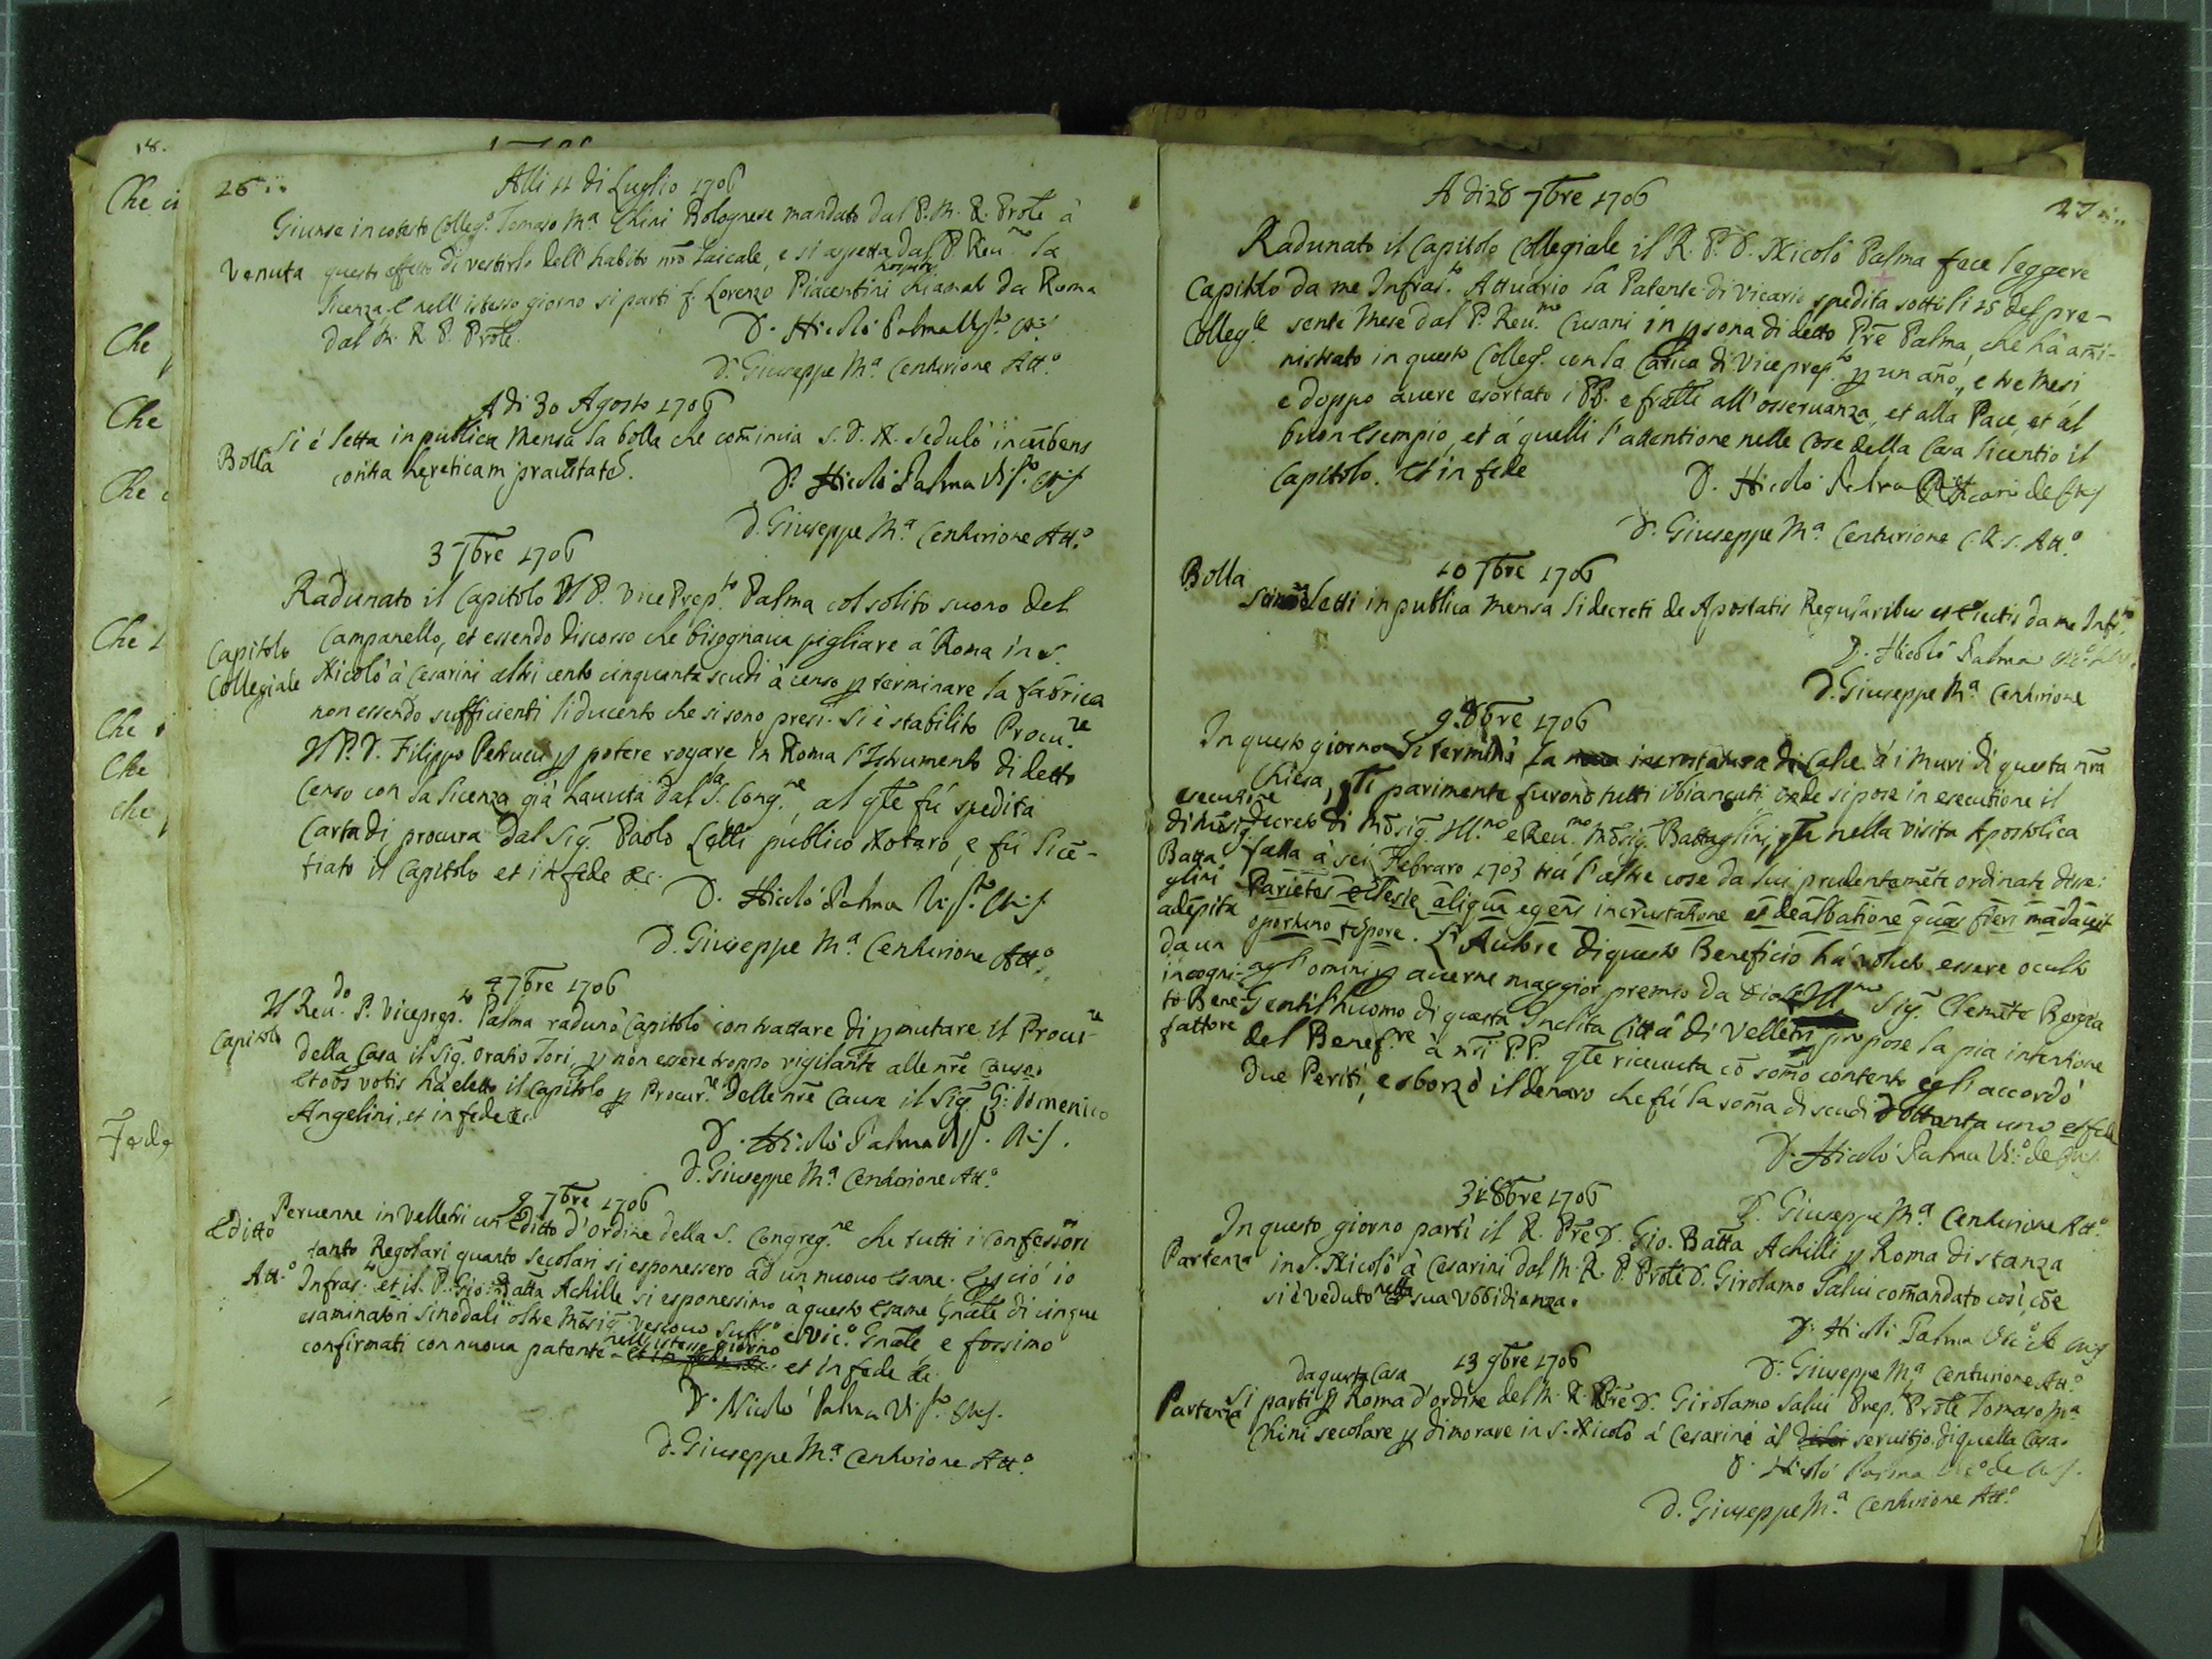 18.
Che
Che
Che
Che
Che
Che
Che
che
Fede
26
Alli 11 di Luglio 1706
Giunse in cotesto Colleg.o Tomaso M.a Chini Bolognese mandato dal P. M. R. Prõle à
Venuta questo effetto di vestirlo dell'habito nr̃o Laicale, e si aspetta dal P. Reu.mo la
licenza, e nell'istesso giorno si partì f. Lorenzo Piacentini nr̃o chiamato da Roma
dal M. R. P. Prõle.
D. Nicolò Palma
D. Giuseppe M.a Centurione Att.o
A di 30 Agosto 1706
Bolla Si è letta in publica Mensa la bolla che com̃incia S. D. N. sedulò incũbens
contra hereticam prauitatẽ.
D. Nicolò Palma
D. Giuseppe M.a Centurione Att.o
3 7bre 1706
Radunato il Capitolo Il P. Vice Prep.to Palma col solito suono del
Capitolo Campanello, et essendo discorso che bisognaua pigliare à Roma in S.
Collegiale Nicolò à Cesarini altri cento cinquanta scudi à censo p terminare la fabrica
non essendo sufficienti li ducento che si sono presi. Si è stabilito Procu.re
Il P. D. Filippo Petrucci p potere rogare in Roma l'Istrumento di detto
Censo con la licenza già hauuta dal la S. Cong.ne, al qle fù spedita
Carta di procura dal Sig. Paolo Letti publico Notaro, e fù licẽ-
tiato il Capitolo et in fede &c.
D. Nicolò Palma
D. Giuseppe M.a Centurione Att.o
4 7bre 1706
Il Reu.do P. Viceprep.to Palma radunò Capitolo con trattare di pmutare il Procur.re
Capitolo della Casa il Sig. Oratio Tori, p non essere troppo rigilante alle nr̃e cause.
Et oẽs votis hà eletto il Capitolo p Procur.re delle nr̃e Cause il Sig. G: Domenico
Angelini, et in fede &c.
D. Nicolò Palma
D. Giuseppe M.a Centurione Att.o
9 7bre 1706
Editto Peruenne in Velletri un Editto d'ordine della S. Congreg.ne che tutti i Confessori
tanto Regolari quanto Secolari si esponessero ad un nuouo Esame. E pciò io
Att.o Infras.to et il P. Gio: Batta Achille si esponessimo à questo Esame Gñale di cinque
esaminatori Sinodali oltre Mõsig. Vescouo Suff.o e Vic.o Gñale, e fossimo
confirmati con nuoua patente nell'istesso giorno et in fede &c.
D. Nicolò Palma
D. Giuseppe M.a Centurione Att.o
27
A di 28 7bre 1706
Radunato il Capitolo Collegiale il R. P. D. Nicolò Palma fece leggere
Capitolo da me Infras.to Attuario la Patente di Vicario spedita sotto li 25 del pre-
Colleg.le sente Mese dal P. Reu.mo Cusani in psona di detto Prẽ Palma, che hà am̃i-
nistrato in questo Colleg.o con la Carica di Viceprep.to p un año, e tre Mesi
e doppo auere esortato i PP. e fratelli all'osseruanza, et alla Pace, et al
buon Esempio, et à quelli l'attentione nelle Cose della Casa licentiò il
Capitolo. Et in fede
D. Nicolò Palma
D. Giuseppe M.a Centurione C. R. S. Att.o
10 7bre 1706
Bolla Sono letti in publica Mensa li decreti de Apostatis Regularibus et Eiectis da me Infr.to
D. Nicolò Palma
D. Giuseppe M.a Centurione
9 8bre 1706
In questo giorno si terminò la incrostatura di Calce à i Muri di questa nr̃a
Chiesa, qli parimente furono tutti sbiancati onde si pose in esecutione il
esecutione
di Mõsig. decreto di Mõsig. Ill.mo e Reu.mo Mõsig. Battaglini, qle nella Visita Apostolica
Batta- fatta à sei Febraro 1703 trà l'altre cose da lui prudentemẽte ordinate disse:
glini Parietes Ecclesie aliqua egens incrustatione et dealbatione quas fieri mãdauit
adẽpita oportuno tẽpore. L'Autore di questo Beneficio hà voluto essere oculto
da un agl'omini p auerne maggior premio da Dio. Ill.mo Sig. Clemẽte Borgia
incogni- Gentil'huomo di questa Inclita Città di Velletri propose la pia intentione
to Bene-
fattore del Benef.re à nr̃i P.P. qle riceuuta cõ som̃o contento egli accordò
due Periti, e sborzò il denaro che fù la som̃a di scudi ottanta uno et fede
D. Nicolò Palma
D. Giuseppe M.a Centurione Att.o
31 8bre 1706
In questo giorno partì il R. Prẽ D. Gio. Batta Achilli p Roma di stanza
Partenza in S. Nicolò à Cesarini dal M. R. P. Prõle D. Girolamo Salui com̃andato così, cõe
si è veduto nella sua vbbidianza.
D. Nicolò Palma
D. Giuseppe M.a Centurione Att.o
13 9bre 1706
da questa Casa
Partenza Si partì p Roma d'ordine del M. R. Prẽ D. Girolamo Salui Prep. Prõle Tomaso M.a
Chini secolare p dimorare in S. Nicolò à Cesarini al seruitio di quella Casa.
D. Nicolò Palma
D. Giuseppe M.a Centurione Att.o